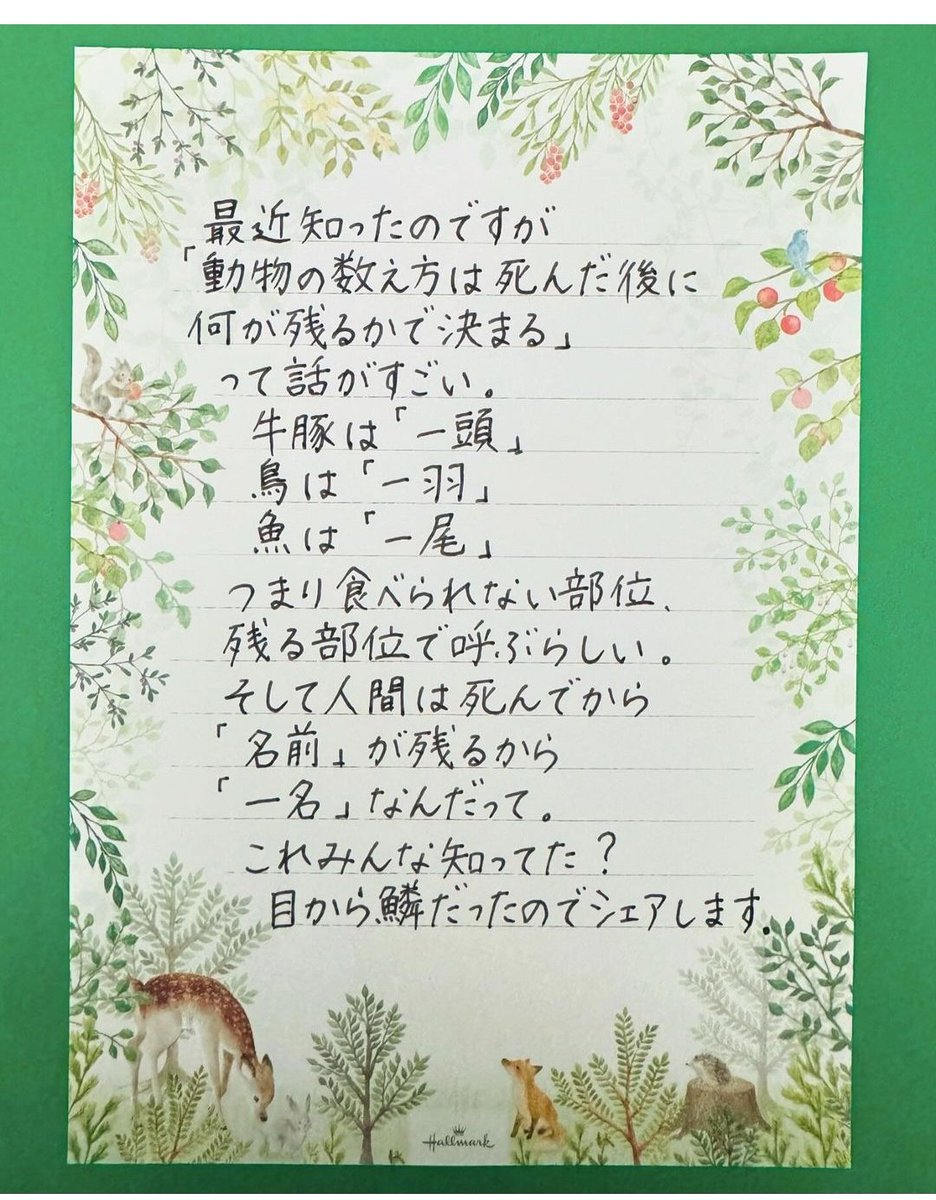 最近知ったのですが
「動物の数え方は死んだ後に
何が残るかで決まる」
って話がすごい。
牛豚は「一頭」
鳥は「一羽」
魚は「一尾」
つまり食べられない部位、
残る部位で呼ぶらしい。
そして人間は死んでから
「名前」が残るから
「一名」なんだって。
これみんな知ってた？
目から鱗だったのでシェアします.
Hallmark